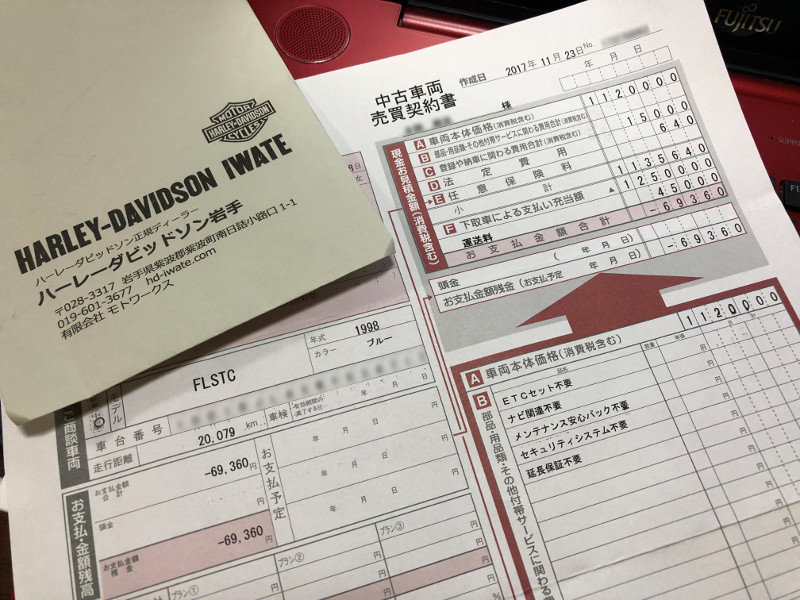 HARLEY-DAVIDSON IWATE
ハーレーダビッドソン正規ディーラー
ハーレーダビッドソン岩手
〒028-3317 岩手県紫波郡紫波町南日詰小路口 1-1
019-601-3677 hd-iwate.com
有限会社 モトワークス
MOTOR
HARLEY-DAVIDSON
CYCLES
FUJITSU
中古車両
売買契約書
作成日 2017年 11月 23日 No.
様
年 月 日
現金お見積金額(消費税含む)
A 車両本体価格(消費税含む) 1120000
B 部品・用品類・その他付帯サービスに関わる費用合計(消費税含む)
C 登録や納車に関わる費用合計(消費税含む) 15000
D 法定費用 640
E 任意保険料
小計 1135640
F 下取車による支払い充当額 ▲ 1250000
運送料 45000
お支払金額合計 -69360
頭金 ( 年 月 日)
お支払金額残金(お支払予定 年 月 日) -69360
A 車両本体価格(消費税含む) 1120000
B 部品・用品類・その他付帯サービスに関わる費
品名 数量 単価
ETCセット不要
ナビ関連不要
メンテナンス安心パック不要
セキュリティシステム不要
延長保証不要
円
ご商談車両
モデル
FLSTC
年式 1998
カラー ブルー
車台番号
走行距離 20,079 km
車検 有効期間の満了する日 年 月 日
お支払・金額残高
お支払金額合計 -69,360 円
頭金 円
お支払金額残金 -69,360 円
お支払予定
年 月 日 円
年 月 日 円
年 月 日 円
プラン① プラン② プラン③
円 円 円